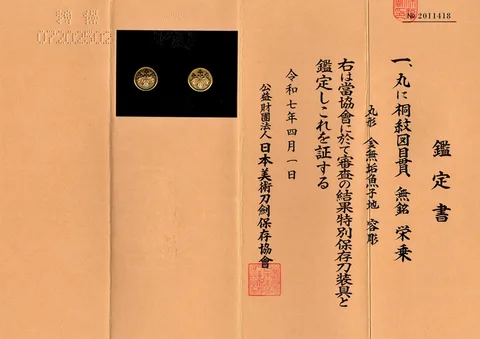 № 2011418
鑑定書
一、丸に桐紋図目貫 無銘 栄乗
丸形 金無垢魚子地 容彫
右は當協會に於て審査の結果特別保存刀装具と
鑑定しこれを証する
令和七年四月一日
公益財團法人 日本美術刀劍保存協會
07202502